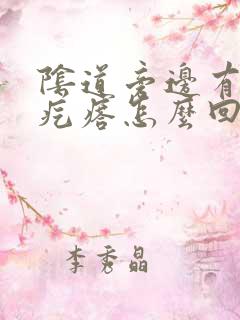 陰道旁邊有
疙瘩怎麼回
李秀晶